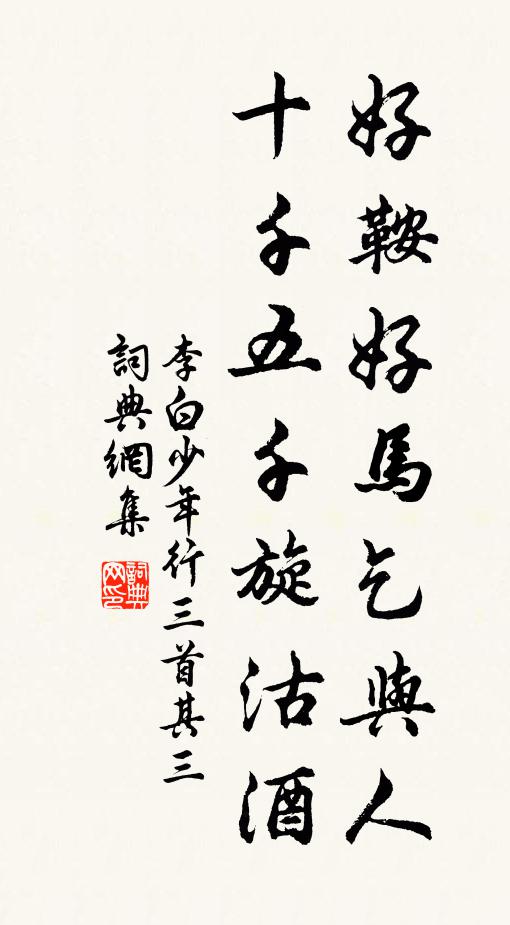 好鞍好馬乞與人
十千五千旋沽酒
李白少年行三首其三
詞典網集
詞典网印